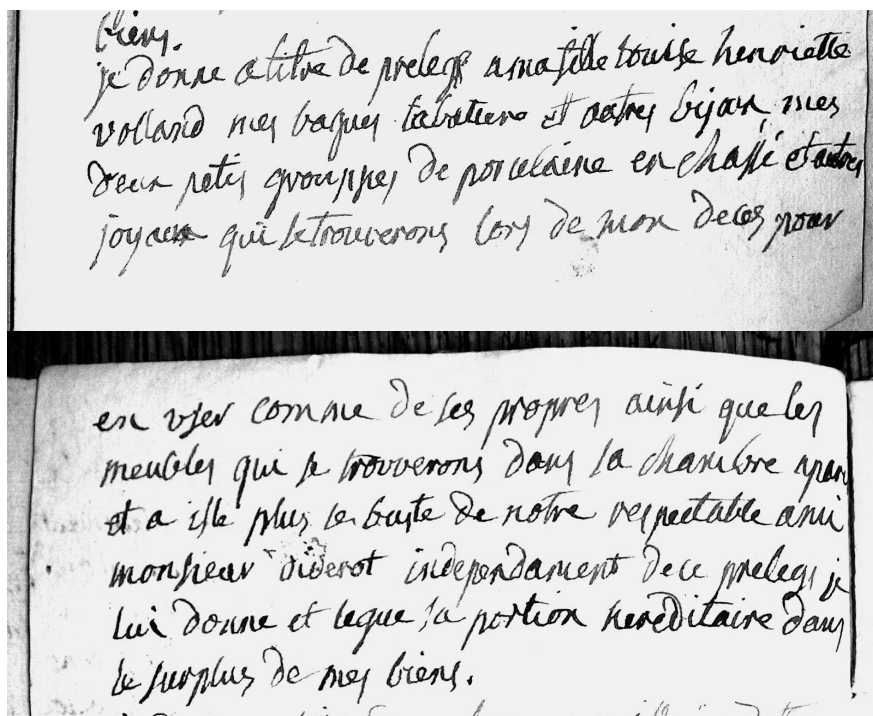 biens.
je donne a titre de prelegs a ma fille Louise henriette
volland mes bagues tabatiere et autres bijoux, mes
deux petis grouppes de porcelaine en chassé et autres
joyaux qui se trouverons lors de mon deces pour
en user comme de ses propres ainsi que les
meubles qui se trouverons dans sa chambre
et a isle plus le buste de notre respectable ami
monsieur diderot independament de ce prelegs je
lui donne et legue sa portion hereditaire dans
le surplus de mes biens.